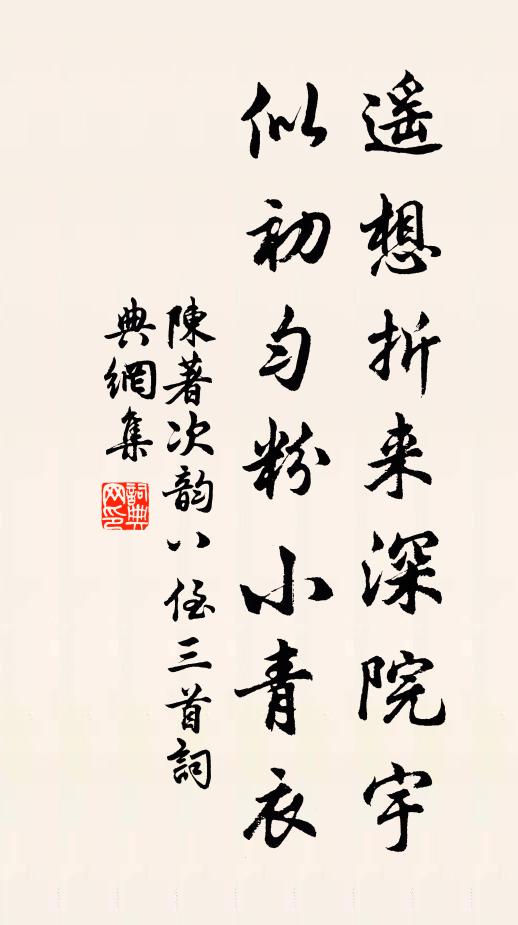 遥想折来深院宇
似初匀粉小青衣
陳著次韵八侄三首詞
典網集
詞典网印